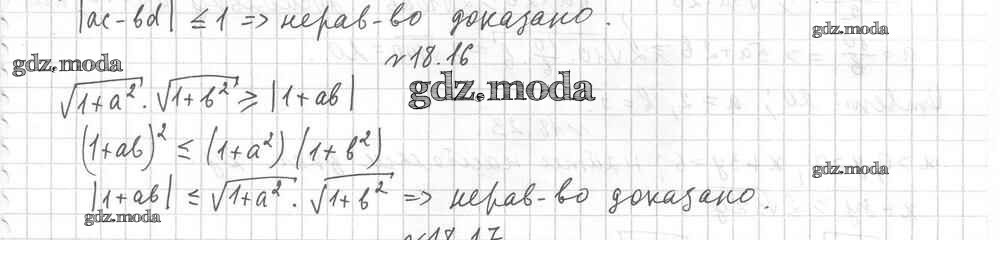 |ac - bd| ≤ 1 => нерав-во доказано.
gdz.moda
gdz.moda
№18.16
√1+a² · √1+b² ≥ |1+ab|
gdz.moda
(1+ab)² ≤ (1+a²) (1+b²)
gdz.moda
|1+ab| ≤ √1+a² · √1+b² => нерав-во доказано.
gdz.moda
№18.17